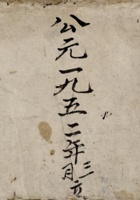 公元一九五二年三月